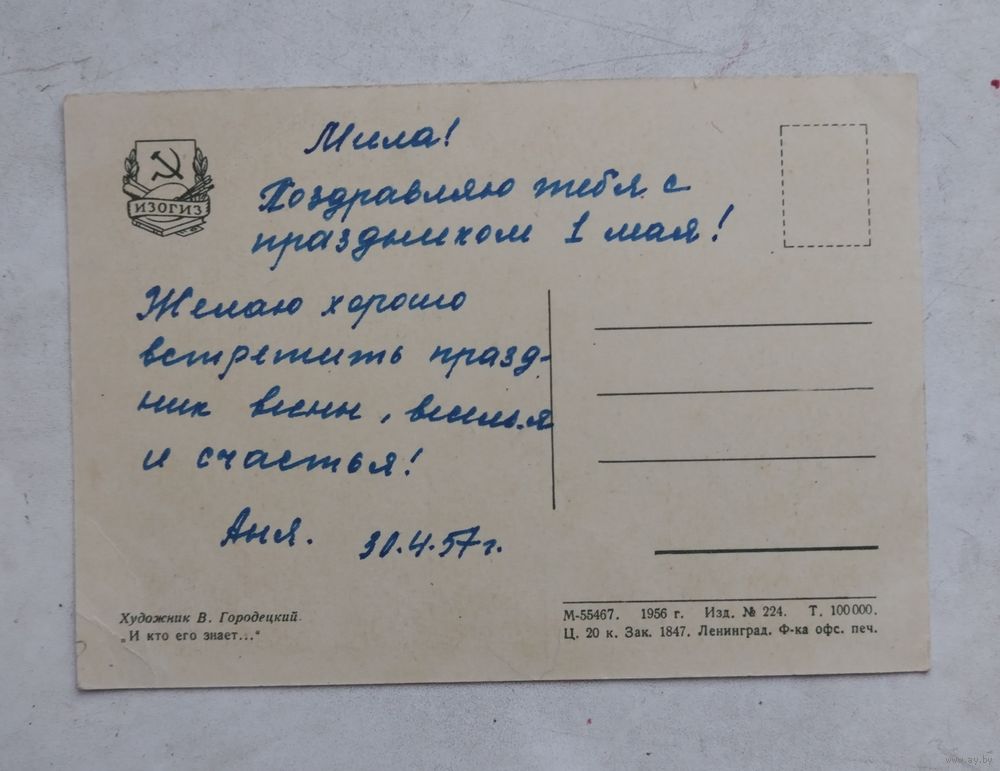 ИЗОГИЗ
Мила!
Поздравляю тебя с
праздником 1 мая!
Желаю хорошо
встретить празд-
ник весны, веселья
и счастья!
Аня. 30.4.57г.
Художник В. Городецкий.
„И кто его знает...“
М-55467. 1956 г. Изд. № 224. Т. 100 000.
Ц. 20 к. Зак. 1847. Ленинград. Ф-ка офс. печ.
www.ay.by